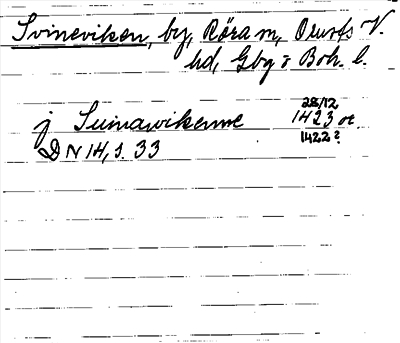 Svineviken, by, Röra sn, Orusts V.
hd, Gbg o Boh. l.
28/12
j Suinawikenne 1423 or.
DN 14, s. 33 1422?